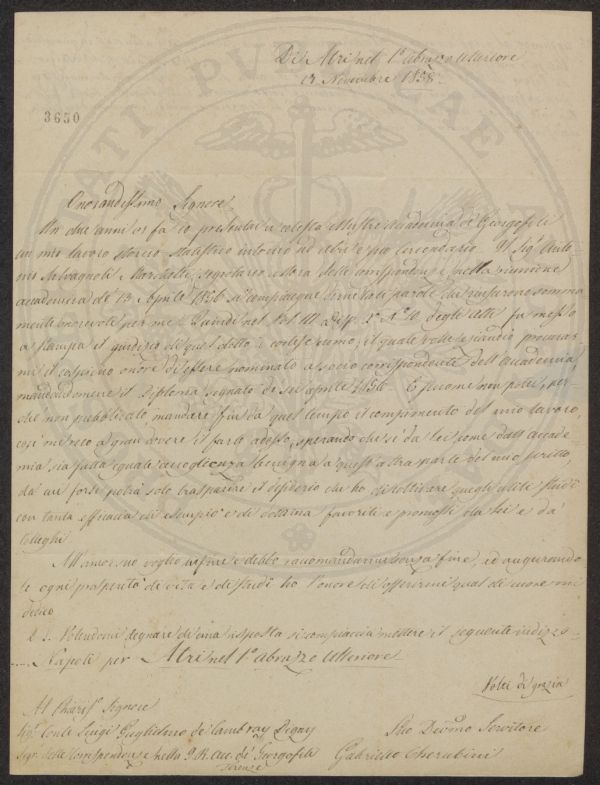 Di Atri nel 1° Abruzzo Ulteriore
17 Novembre 1858
3650
Onorandissimo Signore
Un due anni or fa io presentai a cotesta illustre Accademia de' Georgofili
un mio lavoro storico statistico intorno ad Atri e suo Circondario. Il Sig. Anto-
nio Salvagnoli Marchetti, segretario allora delle corrispondenze, nella riunione
accademica de' 13 Aprile 1856 si compiacque dirne parole che riuscirono somma-
mente onorevoli per me. Quindi nel Vol. III Disp. 2ª degli atti fu messo
a stampa il giudizio di quel dotto e cortese uomo; il quale volle eziandio procurar-
mi il cospicuo onore di essere nominato a socio corrispondente dell'Accademia,
mandandomene il Diploma segnato de' sei aprile 1856. E siccome non potei, per-
chè non pubblicato mandare fin da quel tempo il compimento del mio lavoro,
così mi reco a gran dovere il farlo adesso, sperando che sì da lei come dall'Accade-
mia sia fatta eguale accoglienza benigna a quest'altra parte del mio scritto,
da cui forse potrà solo trasparire il desiderio che ho di coltivare quegli utili studi
con tanta efficacia di esempio e di dottrina favoriti e promossi da lei e da'
Colleghi.
All'amor suo voglio infine e debbo raccomandarmi senza fine, ed augurando
le ogni prosperità di vita e di studi ho l'onore di offerirmi qual di cuore mi
dedico
P. S. Volendomi degnare di una risposta si compiaccia mettere il seguente indirizzo
Napoli per Atri nel 1° Abruzzo Ulteriore
Volti di grazia
Al Chiaris° Signore
Sig. Conte Luigi Guglielmo de Cambray Digny
Segr. delle Corrispondenze nella I. R. Acc. de' Georgofili
Firenze
Suo Devmo Servitore
Gabriello Cherubini
PUBLICAE